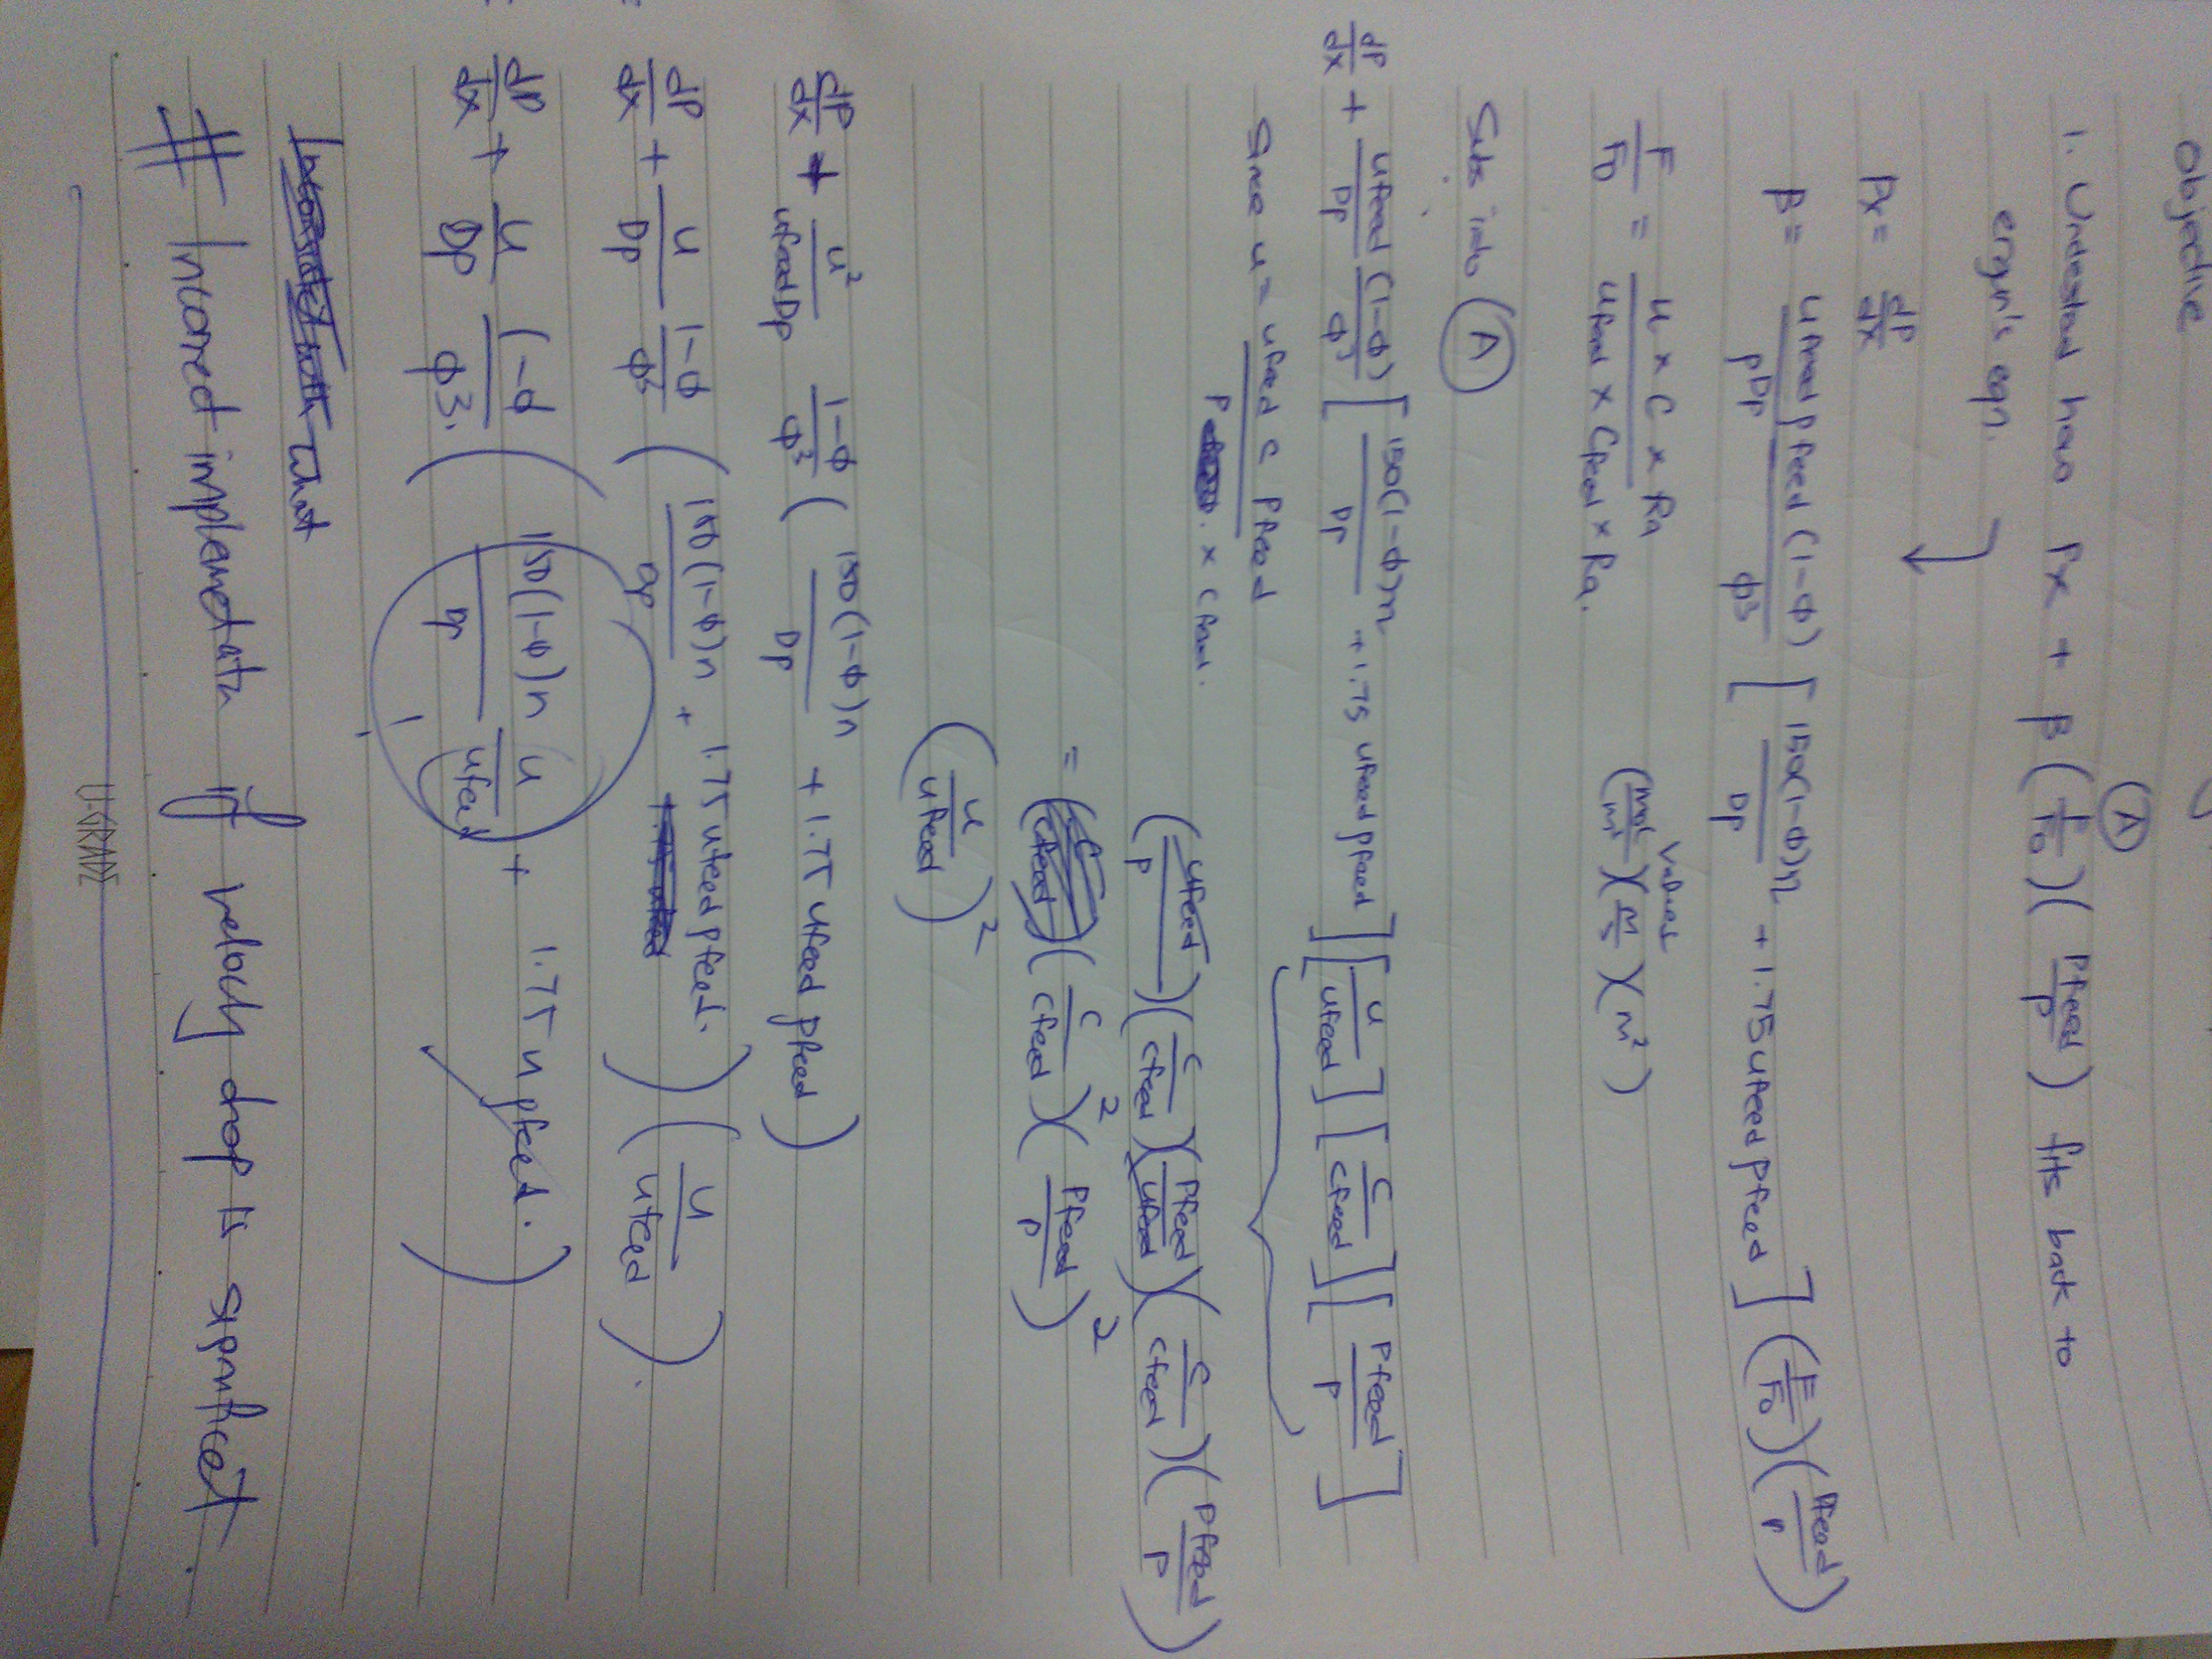 Objective
1. Understand how Px + β (F/F0)(Pfeed/P) fits back to
(A)
ergun's eqn.
Px = dP/dx
β = ufeed ρfeed (1-ϕ) / ρDp ϕ³ [ 150(1-ϕ)η / Dp + 1.75 ufeed ρfeed ] (F/F0)(Pfeed/P)
F/F0 = u × C × Ra / ufeed × Cfeed × Ra. (mol/m³)(m/s)(m²)
Subs into (A)
dP/dx + ufeed/Dp (1-ϕ)/ϕ³ [ 150(1-ϕ)η / Dp + 1.75 ufeed ρfeed ][ u/ufeed ][ C/Cfeed ][ Pfeed/P ]
Since u = ufeed C Pfeed / P × Cfeed.
(ufeed/P)(C/Cfeed)(Pfeed/ufeed)(C/Cfeed)(Pfeed/P)
= (C/Cfeed)²(Pfeed/P)²
(u/ufeed)²
dP/dx + u²/ufeedDp 1-ϕ/ϕ³ ( 150(1-ϕ)η / Dp + 1.75 ufeed ρfeed )
dP/dx + u/Dp 1-ϕ/ϕ³ ( 150(1-ϕ)η / Dp + 1.75 ufeed ρfeed. ) ( u/ufeed ).
dP/dx + u/Dp (1-ϕ/ϕ3. ( 150(1-ϕ)η / Dp (u/ufeed) + 1.75 u ρfeed. )
what
# Incorrect implementatn if velocity drop is significat.
U-GRADE